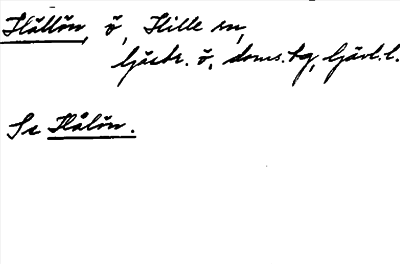 Hållön, ö, Hille sn,
Gästr. ö. doms.tg, Gävl.l.
Se Hålön.